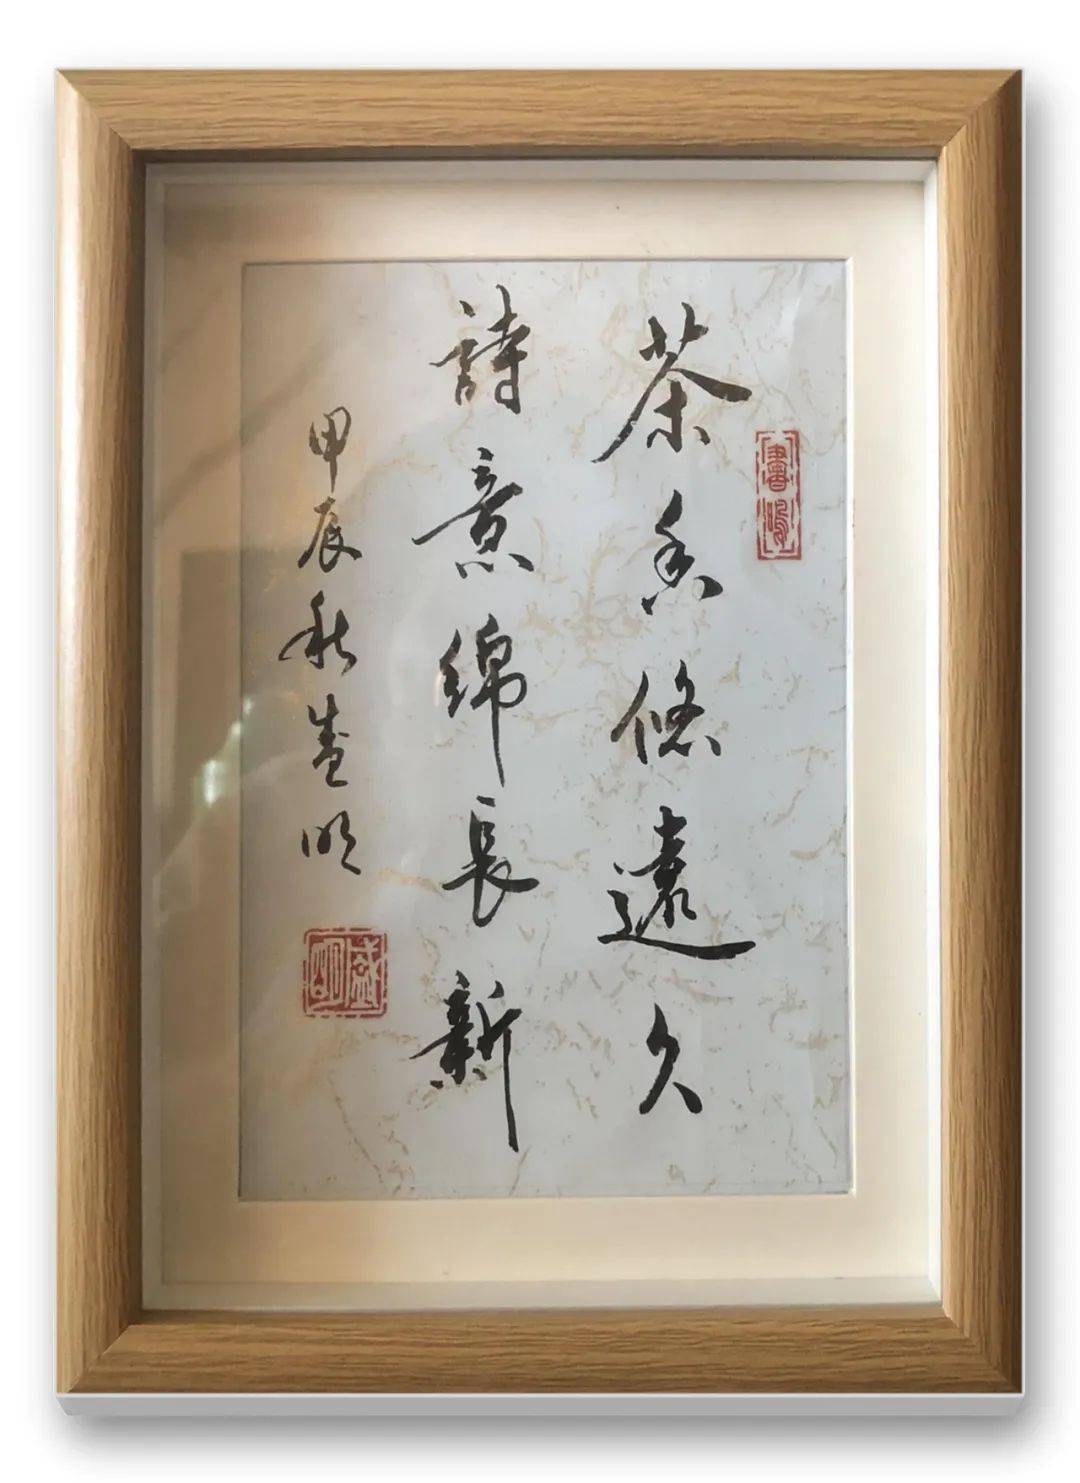 茶香悠遠久
詩意綿長新
甲辰秋盛明
盛明